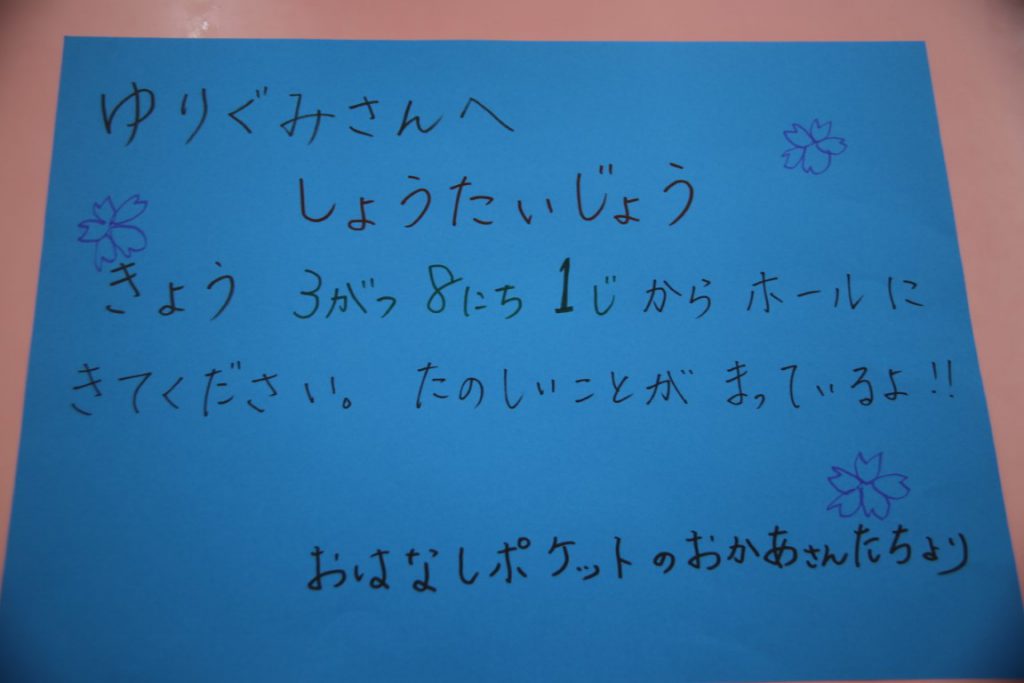 ゆりぐみさんへ
しょうたいじょう
きょう 3がつ 8にち 1じ から ホールに
きてください。 たのしいことが まっているよ!!
おはなしポケットのおかあさんたちより